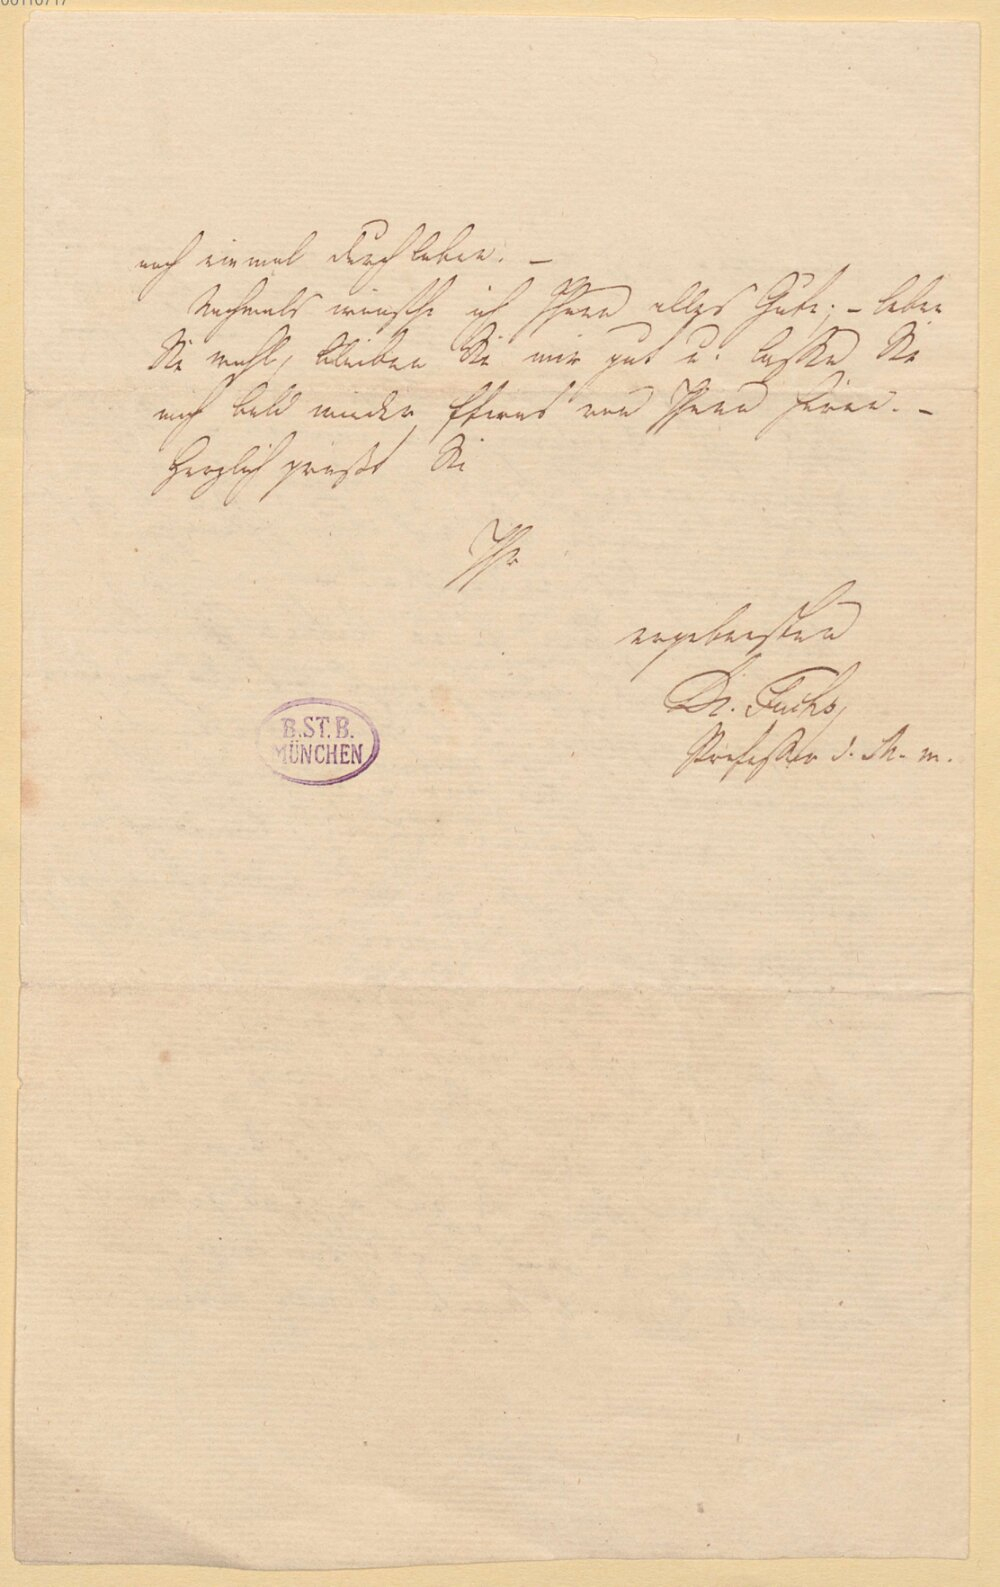 noch einmal durchleben. –
Nochmals wünsche ich Ihnen alles Gute; – leben
Sie wohl, bleiben Sie mir gut u. lassen Sie
mich bald wieder etwas von Ihnen hören. –
Herzlich grüßt Sie
Ihr
ergebenster
Dr. Fuchs,
Professor d. M.
B.ST.B.
MÜNCHEN